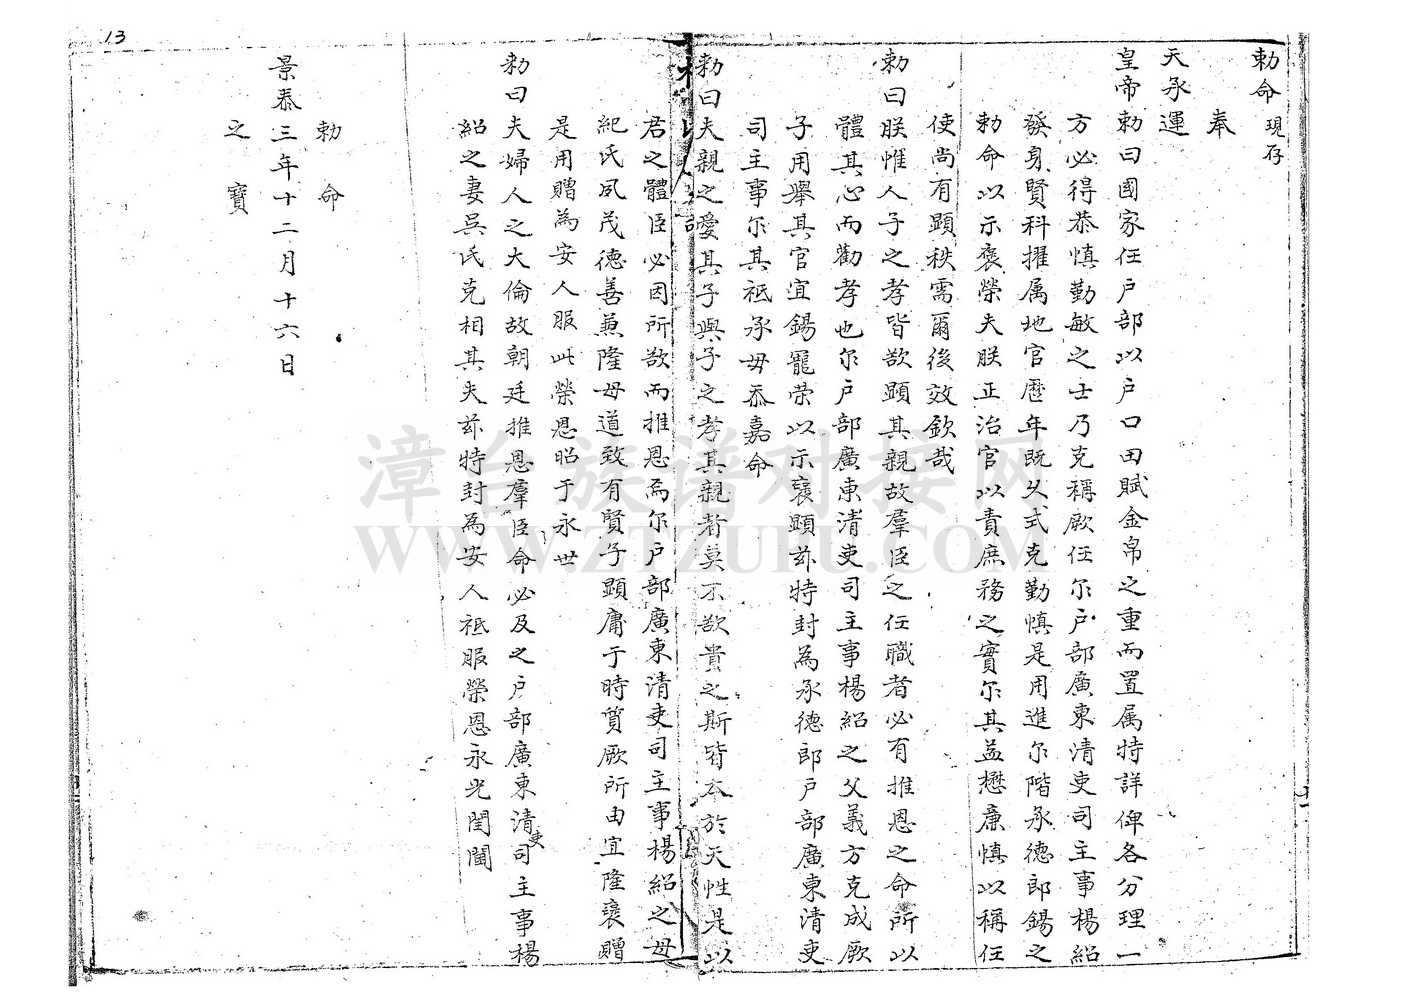 13
勅命 現存
奉
天承運
皇帝勅曰國家任戸部以戸口田賦金帛之重而置属特詳俾各分理一
方必得恭慎勤敏之士乃克稱厥任尔戸部廣東清吏司主事楊紹
發身賢科擢属地官歷年既久式克勤慎是用進尔階承德郎錫之
勅命以示褒榮夫朕正治官以責庶務之實尔其益懋廉慎以稱任
使尚有顯秩需爾後效欽哉
勅曰朕惟人子之孝皆欲顯其親故羣臣之任職者必有推恩之命所以
體其心而勸孝也尔戸部廣東清吏司主事楊紹之父義方克成厥
子用舉其官宜錫寵荣以示襃顕玆特封為承德郎戸部廣東清吏
司主事尔其祗承毋忝嘉命
勅曰夫親之愛其子與子之孝其親者莫不欲貴之斯皆本於天性是以
君之體臣必因所欲而推恩焉尔戸部廣東清吏司主事楊紹之母
紀氏夙茂德善兼隆母道致有賢子顯庸于時質厥所由宜隆襃贈
是用贈為安人服此榮恩昭于永世
勅曰夫婦人之大倫故朝廷推恩羣臣命必及之戸部廣東清吏司主事楊
紹之妻吳氏克相其夫玆特封為安人祗服榮恩永光閨闥
勅命
景泰三年十二月十六日
之寶
漳台族谱对接网
WWW.ZTZUPU.COM